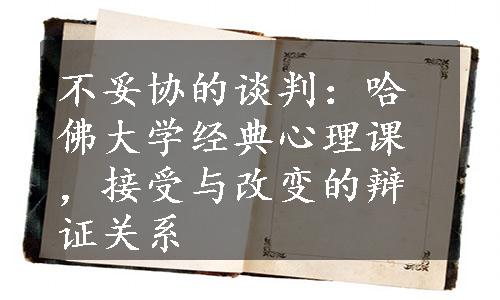 不妥协的谈判：哈
佛大学经典心理课
，接受与改变的辩
证关系